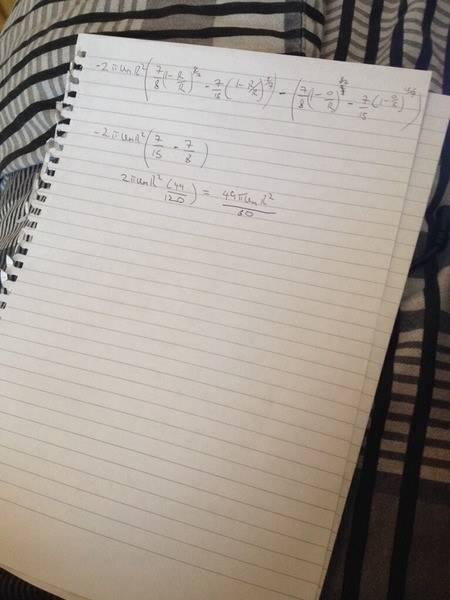 -2πUmR²(7/8(1-R/R)^8/7 - 7/15(1-R/R)^15/7) - (7/8(1-0/R)^8/7 - 7/15(1-0/R)^15/7)
-2πUmR²(7/15 - 7/8)
2πUmR²(49/120) = 49πUmR²/60